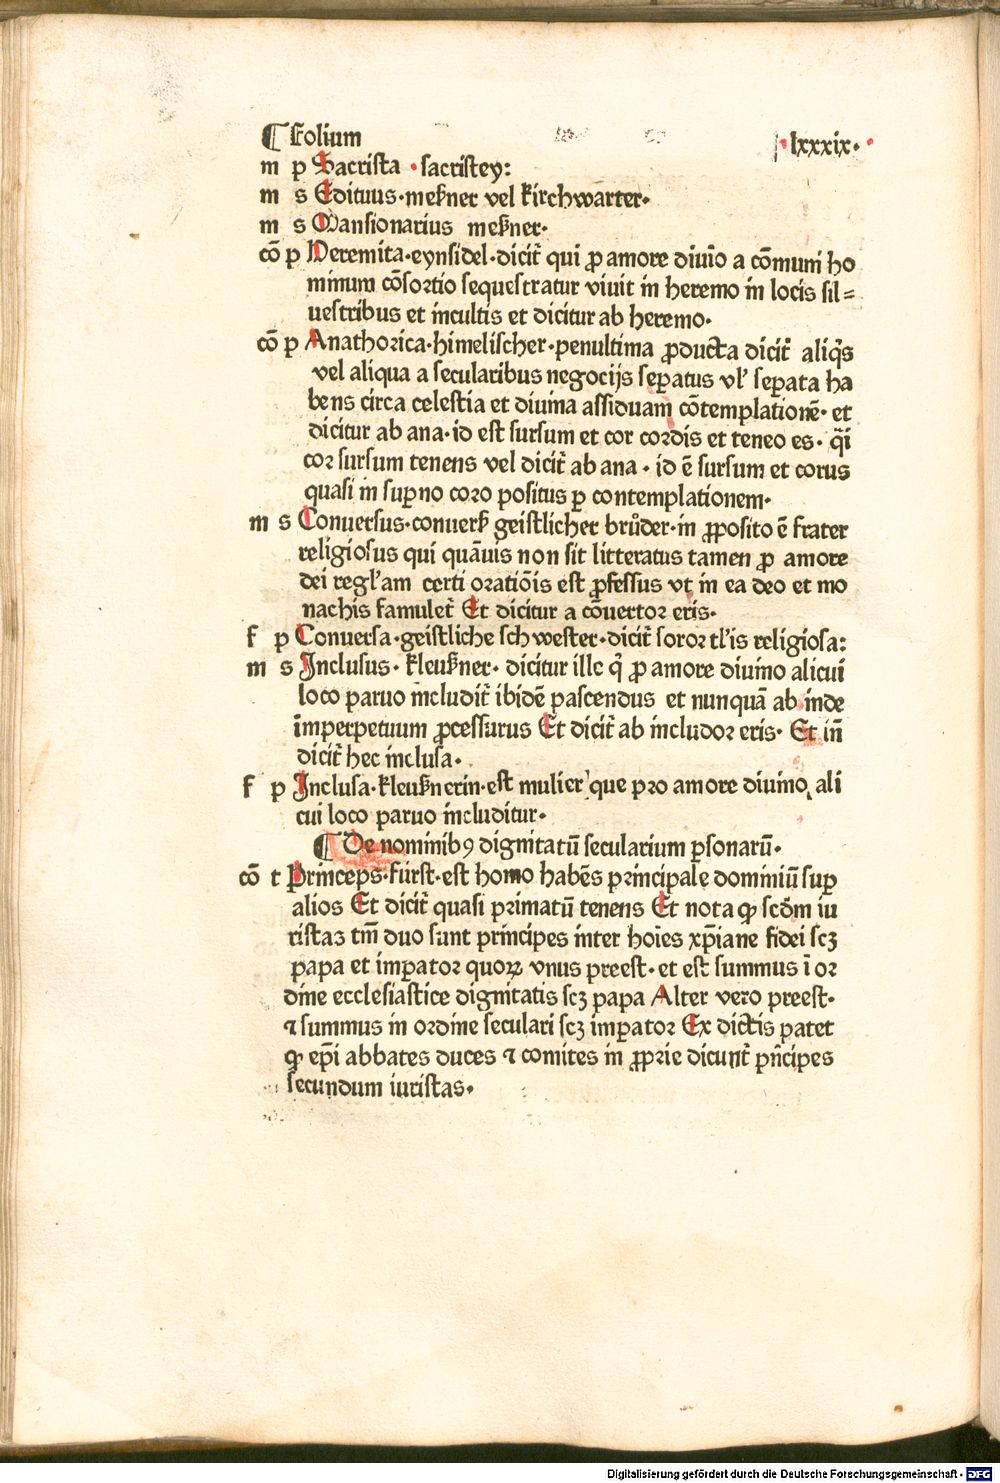 ¶ Folium ·lxxxix·
m p Sacrista ·sacristey:
m s Edituus·meßner vel kirchwarter·
m s Mansionarius meßner·
cō p Heremita·eynsidel·dicit᷑ qui p̱ amore diuīo a cōmuni ho
minum cōsortio sequestratur viuit in heremo in locis sil⸗
uestribus et incultis et dicitur ab heremo·
cō p Anathorica·himelischer·penultima ꝓducta dicit᷑ aliq̄s
vel aliqua a secularibus negocijs seꝑatus vl' seꝑata ha
bens circa celestia et diuina assiduam cōtemplationē· et
dicitur ab ana·id est sursum et cor cordis et teneo es· q̄i
cor sursum tenens vel dicit᷑ ab ana · id ē sursum et corus
quasi in suꝑno coro positus ꝑ contemplationem·
m s Conuersus·conuerß geistlicher brůder·in ꝓposito ē frater
religiosus qui quāuis non sit litteratus tamen ꝓ amore
dei regl'am certi oratiōis est ꝓfessus vt in ea deo et mo
nachis famulet᷑ Et dicitur a cōuertor eris·
f p Conuersa·geistliche schwester·dicit᷑ soror tl'is religiosa:
m s Inclusus· kleußner· dicitur ille q̇ ꝓ amore diuino alicui
loco paruo includit᷑ ibidē pascendus et nunquā ab inde
imperpetuum ꝓcessurus Et dicit᷑ ab includor eris· Et in̄
dicit᷑ hec inclusa·
f p Inclusa·kleußnerin·est mulier que pro amore diuino ali
cui loco paruo includitur·
¶ De nominibꝰ dignitatū secularium ꝑsonarū·
cō t Princeps·fürst·est homo habēs principale dominiū suꝑ
alios Et dicit᷑ quasi primatū tenens Et nota ꝙ scd̄m iu
ristaꝫ tm̄ duo sunt principes inter hoīes xp̄iane fidei scꝫ
papa et imꝑator quoꝝ vnus preest·et est summus ī or
dine ecclesiastice dignitatis scꝫ papa Alter vero preest·
⁊ summus in ordine seculari scꝫ imꝑator Ex dictis patet
ꝙ ep̄i abbates duces ⁊ comites in ꝓprie dicunt᷑ pn̄cipes
secundum iuristas·
Digitalisierung gefördert durch die Deutsche Forschungsgemeinschaft - DFG